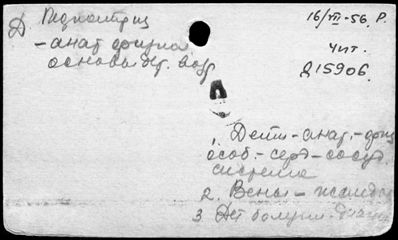 Д. Педиатрия
16/VII-56. Р.
– анат. физиол.
чит.
основы дет. возр.
Д15906.
1. Дети – анат.-физ.
особ. – серд – сосуд.
система
2. Вены –
3. Дет болезни –